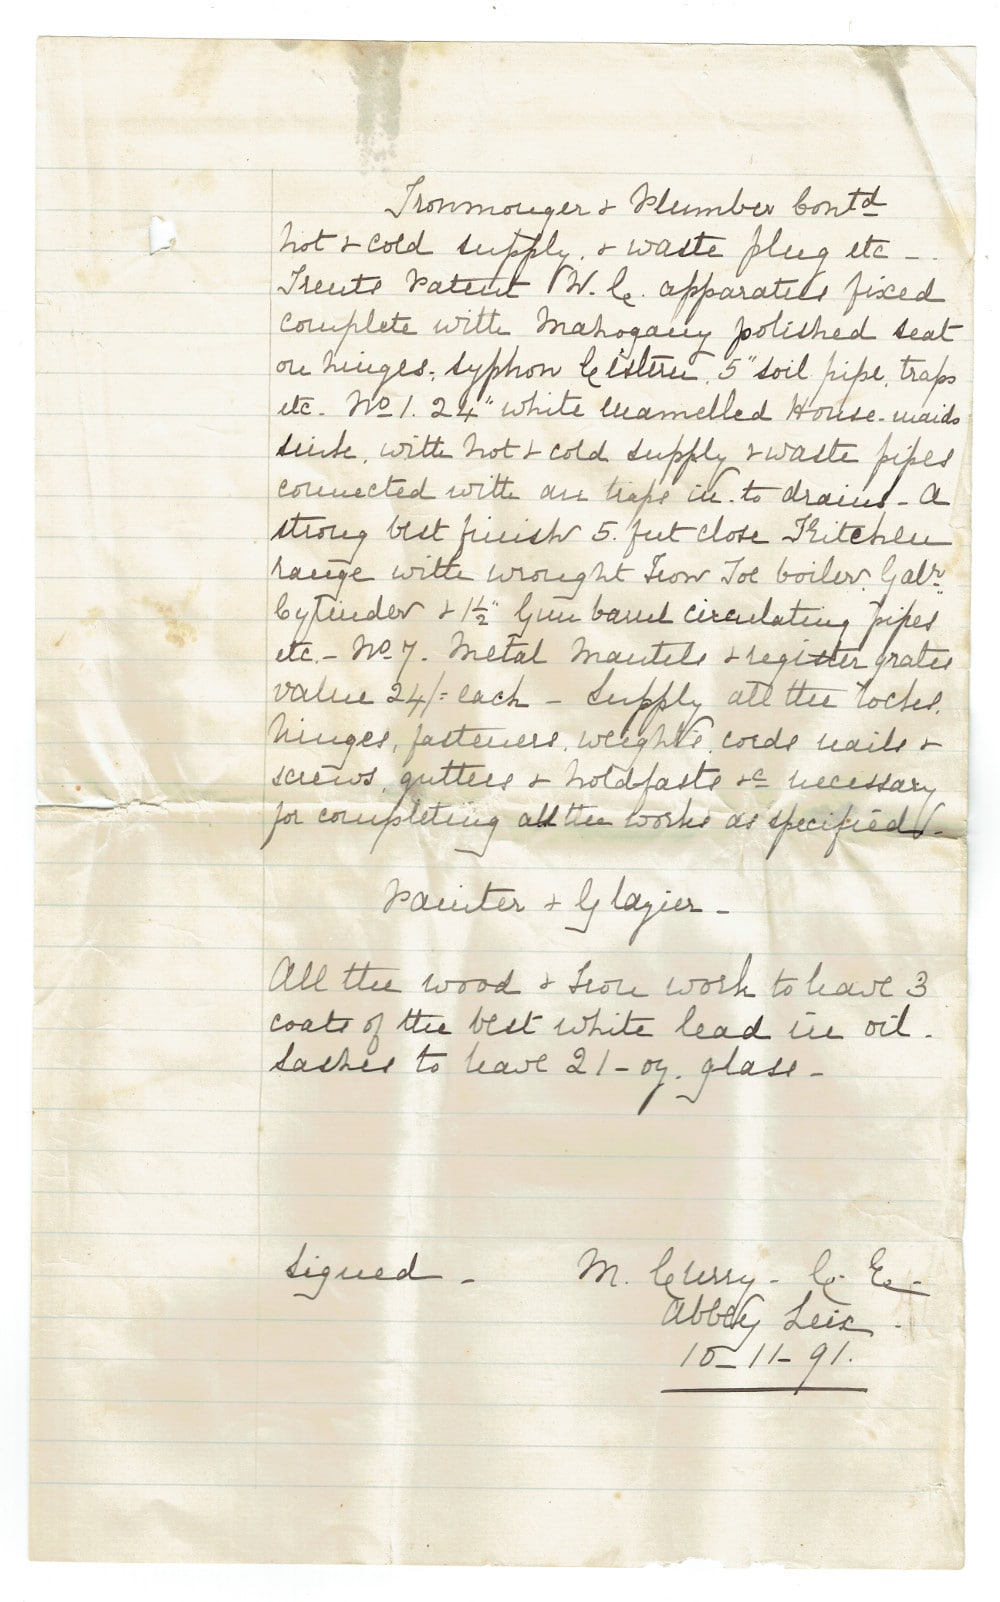 Ironmonger & Plumber Contd
hot & cold supply, & waste plug etc -
Trents Patent W.C. apparatus fixed
complete with Mahogany polished seat
on hinges, syphon Cistern, 5" soil pipe, traps
etc. No 1. 24" white enamelled House-maids
sink, with hot & cold supply & waste pipes
connected with traps to drains - A
strong best finish 5. feet close Kitchen
range with wrought Iron Toe boiler, Galv.
Cylinder & 1½" Gun barrel circulating pipes
etc. - No. 7. Metal Mantels & register grates
value 24/= each - Supply all the locks,
hinges, fasteners, weights, cords nails &
screws, gutters & holdfasts &c necessary
for completing all the works as specified -
Painter & Glazier -
All the wood & Iron work to have 3
coats of the best white lead in oil -
Sashes to have 21-oz. glass -
Signed - M. Curry - C. E. -
Abbey Leix -
10-11-91.